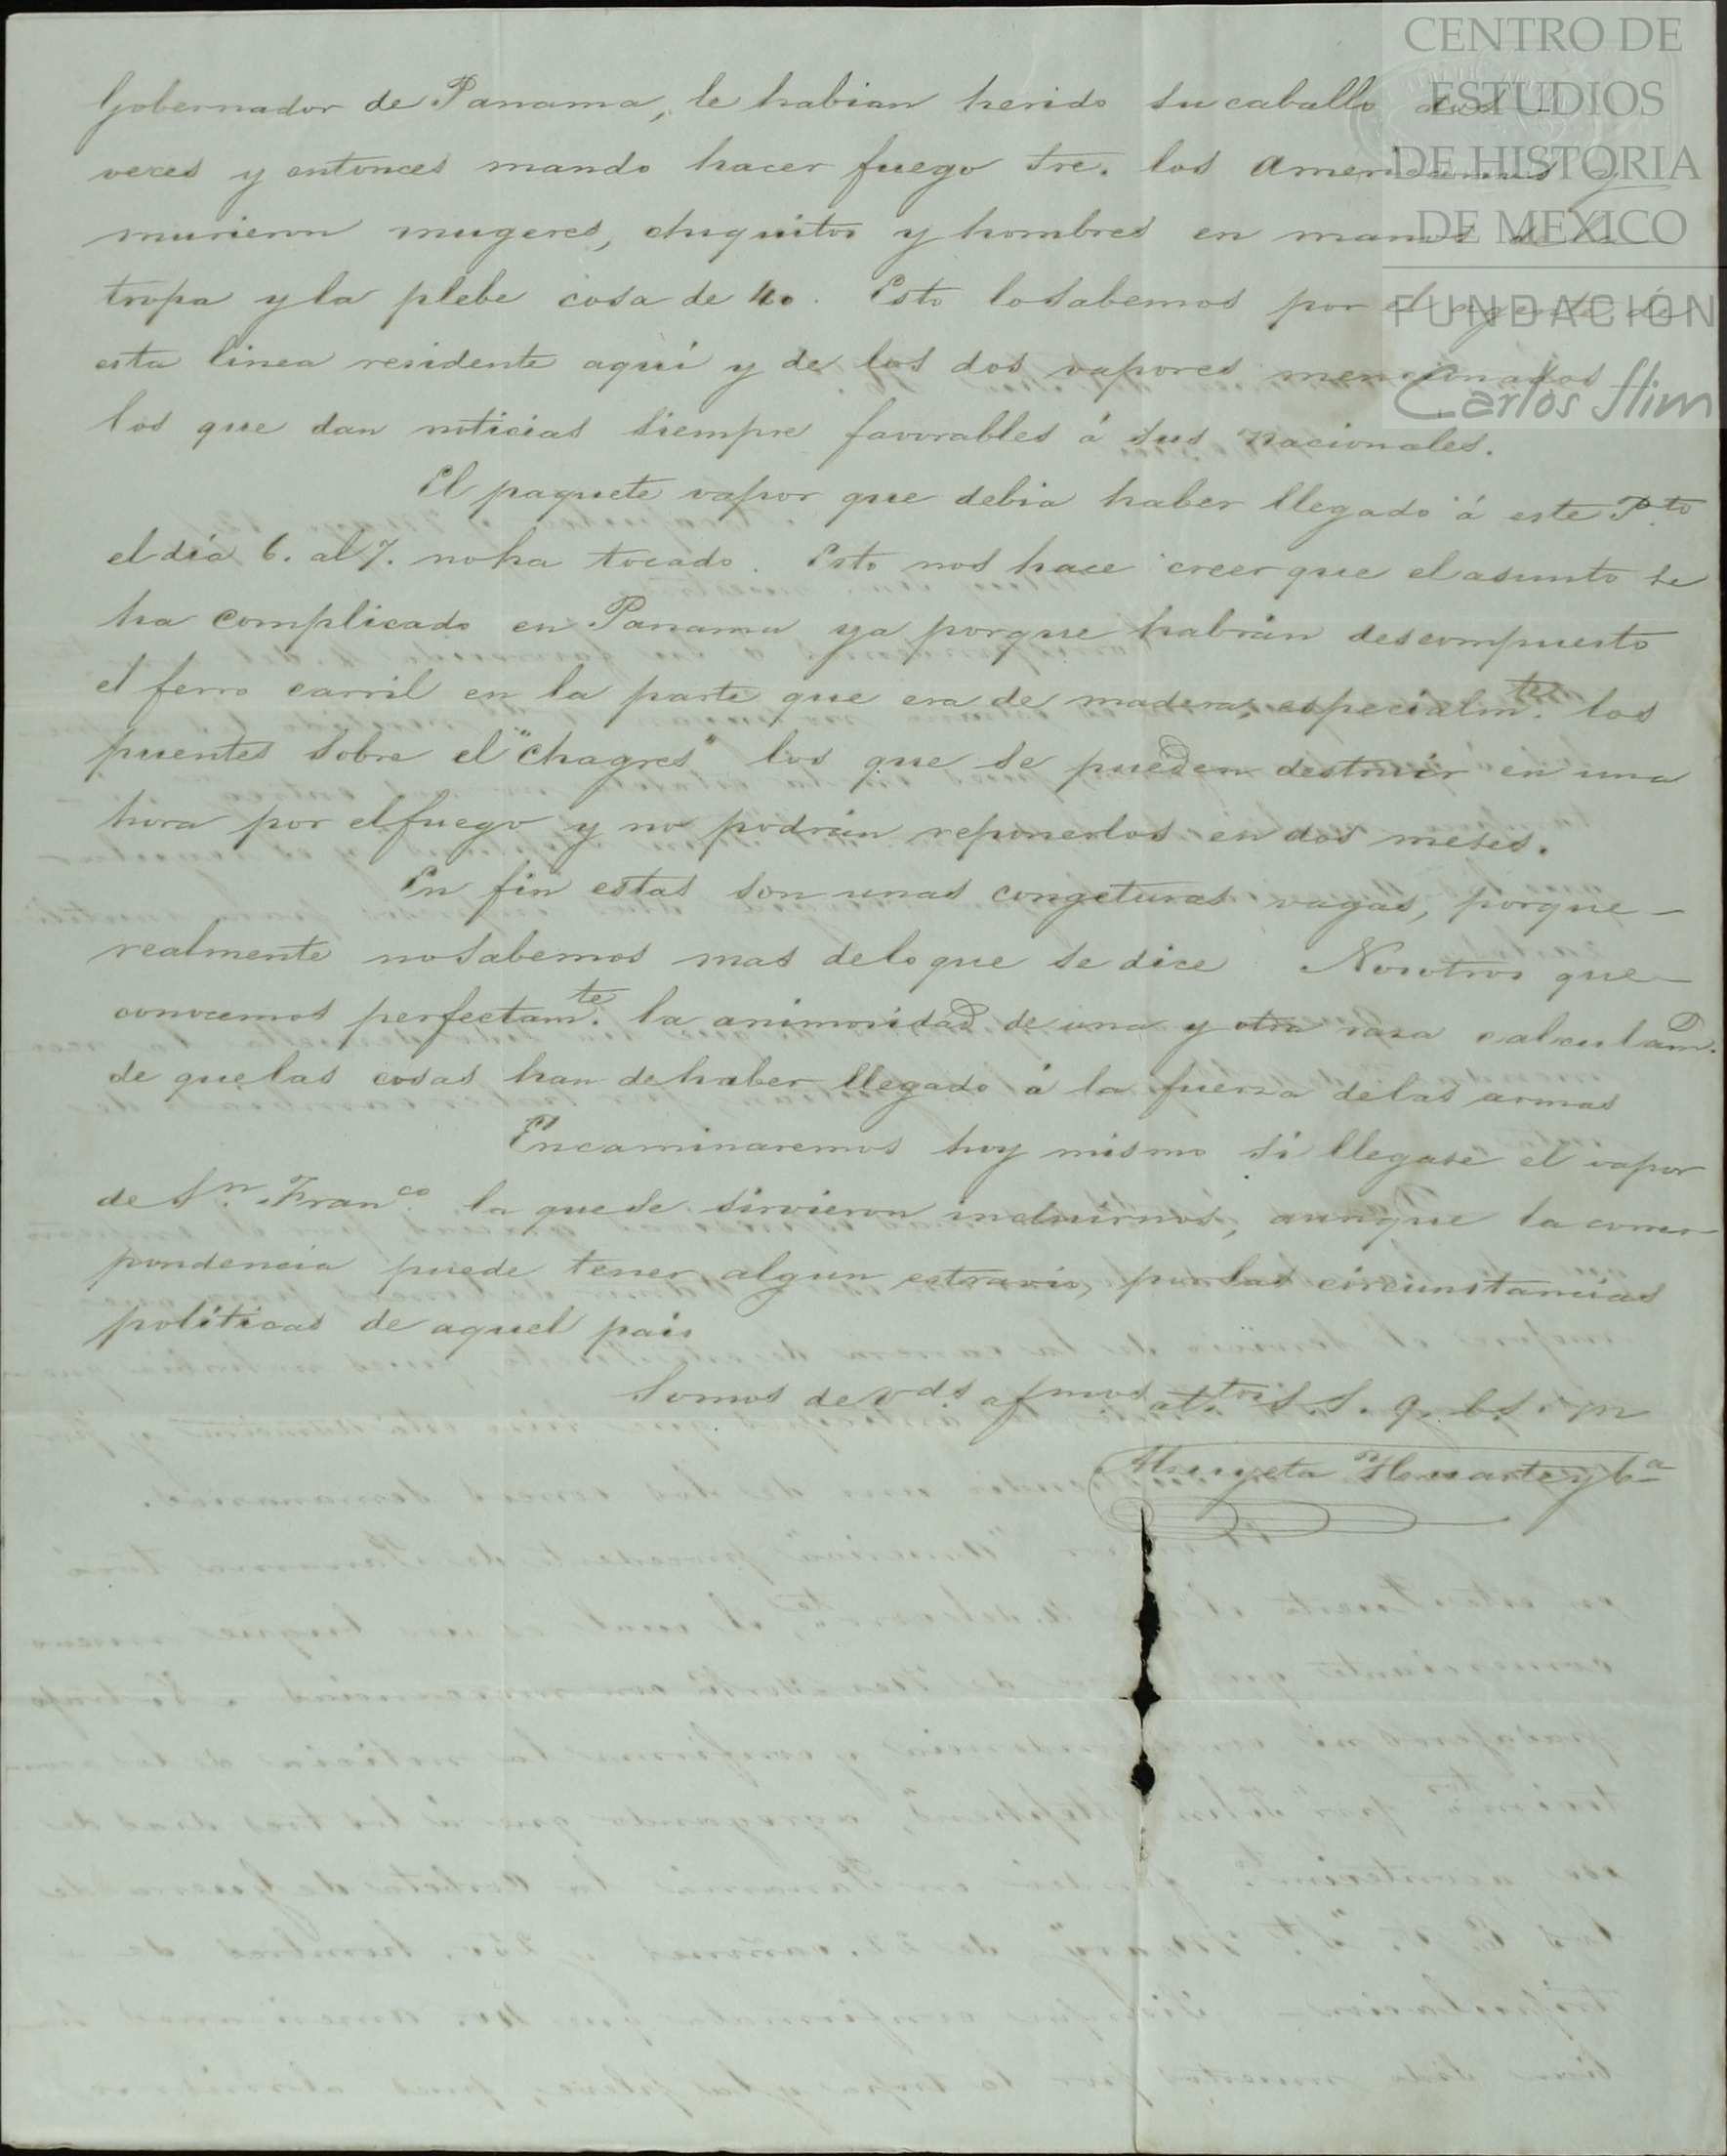 Gobernador de Panama, le habian herido su caballo dos
veces y entonces mando hacer fuego sre. los Americanos y
murieron mugeres, chiquitos y hombres en manos de la
tropa y la plebe cosa de 40. Esto lo sabemos por el agente de
esta linea residente aquí y de los dos vapores mencionados
los que dan noticias siempre favorables á sus nacionales.
El paquete vapor que debia haber llegado á este Pto
el día 6. al 7. no ha tocado. Esto nos hace creer que el asunto se
ha complicado en Panama ya porque habrán descompuesto
el ferro carril en la parte que era de madera, especialmte. los
puentes sobre el "Chagres" los que se pueden destruir en una
hora por el fuego y no podrán reponerlos en dos meses.
En fin estas son unas congeturas vagas, porque
realmente no sabemos mas de lo que se dice Nosotros que
conocemos perfectamte. la animosidad de una y otra raza calculam.
de que las cosas han de haber llegado á la fuerza de las armas
Encaminaremos hoy mismo si llegase el vapor
de Sn. Franco. la que se sirvieron incluirnos, aunque la corres
pondencia puede tener algun estravio, por las circunstancias
políticas de aquel pais
Somos de Vds. afmos attos S. S. q. b. s. m
Huarte y Ca
CENTRO DE
ESTUDIOS
DE HISTORIA
DE MEXICO
FUNDACIÓN
Carlos Slim